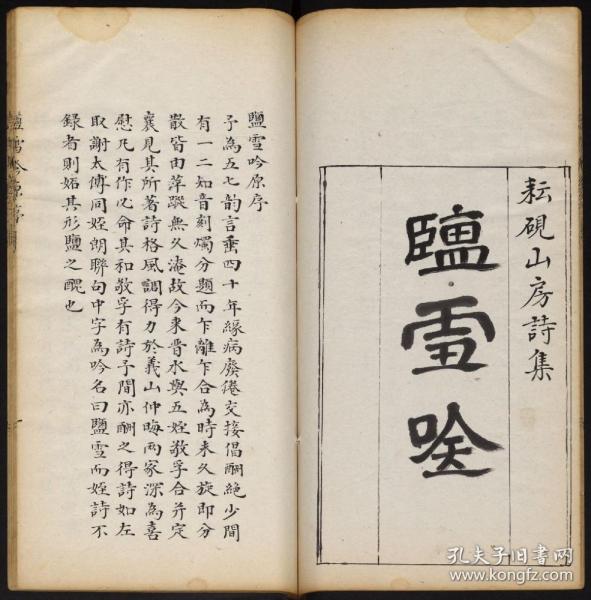 耘硯山房詩集
鹽雪唫
鹽雪吟原序
予為五七韵言垂四十年緣病廢倦交接倡酬絕少間
有一二知音刻燭分題而乍離乍合為時未久旋即分
散皆由萍蹤無久淹故今來晋水與五姪敬孚合并定
襄見其所著詩格風調得力於義山仲晦兩家深為喜
慰凡有作必命其和敬孚有詩予間亦酬之得詩如左
取謝太傅同姪朗聯句中字為吟名曰鹽雪而姪詩不
錄者則妬其形鹽之醜也
鹽雪吟原序
孔夫子旧书网
www.kongfz.com